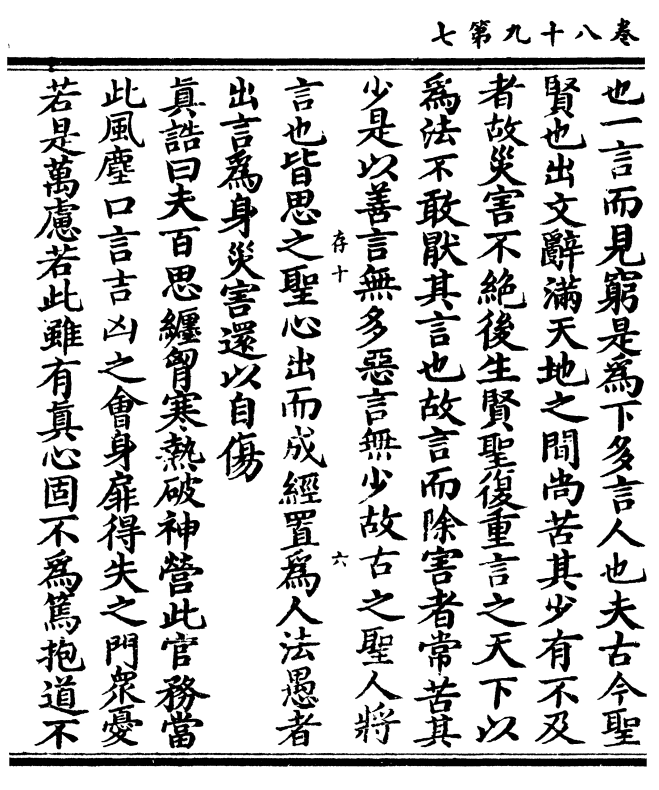 卷八十九第七
也一言而見窮是爲下多言人也夫古今聖
賢也出文辭滿天地之間尚苦其少有不及
者故災害不絶後生賢聖復重言之天下以
爲法不敢猒其言也故言而除害者常苦其
少是以善言無多惡言無少故古之聖人將
存十 六
言也皆思之聖心出而成經置爲人法愚者
出言爲身災害還以自傷
真誥曰夫百思纏胷寒熱破神營此官務當
此風塵口言吉凶之會身扉得失之門衆憂
若是萬慮若此雖有真心固不爲篤抱道不